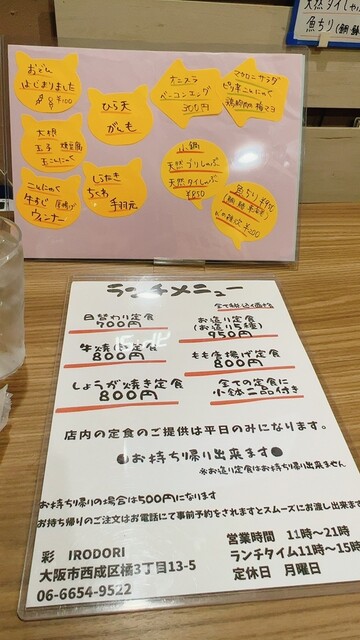 天然タイしゃぶ
魚ちり
おでん
はじまりました
¥100
大根
玉子 焼豆腐
玉こんにゃく
こんにゃく
牛すじ 厚揚げ
ウィンナー
ひら天
がんも
しらたき
ちくわ
手羽元
オニスラ
ベーコンエッグ
300円
マカロニサラダ
ピリ辛こんにゃく
小鍋
天然ブリしゃぶ
天然タイしゃぶ
¥850
魚ちり
ランチメニュー
全て税込価格
日替わり定食
700円
お造り定食
(お造り5種)
950円
牛焼肉定食
800円
もも唐揚げ定食
800円
しょうが焼き定食
800円
全ての定食に
小鉢二品付き
店内の定食のご提供は平日のみになります。
●お持ち帰り出来ます●
※お造り定食はお持ち帰り出来ません
お持ち帰りの場合は500円になります
お持ち帰りのご注文はお電話にて事前予約をされますとスムーズにお渡し出来ます
彩 IRODORI
大阪市西成区橘3丁目13-5
06-6654-9522
営業時間 11時〜21時
ランチタイム11時〜15時
定休日 月曜日